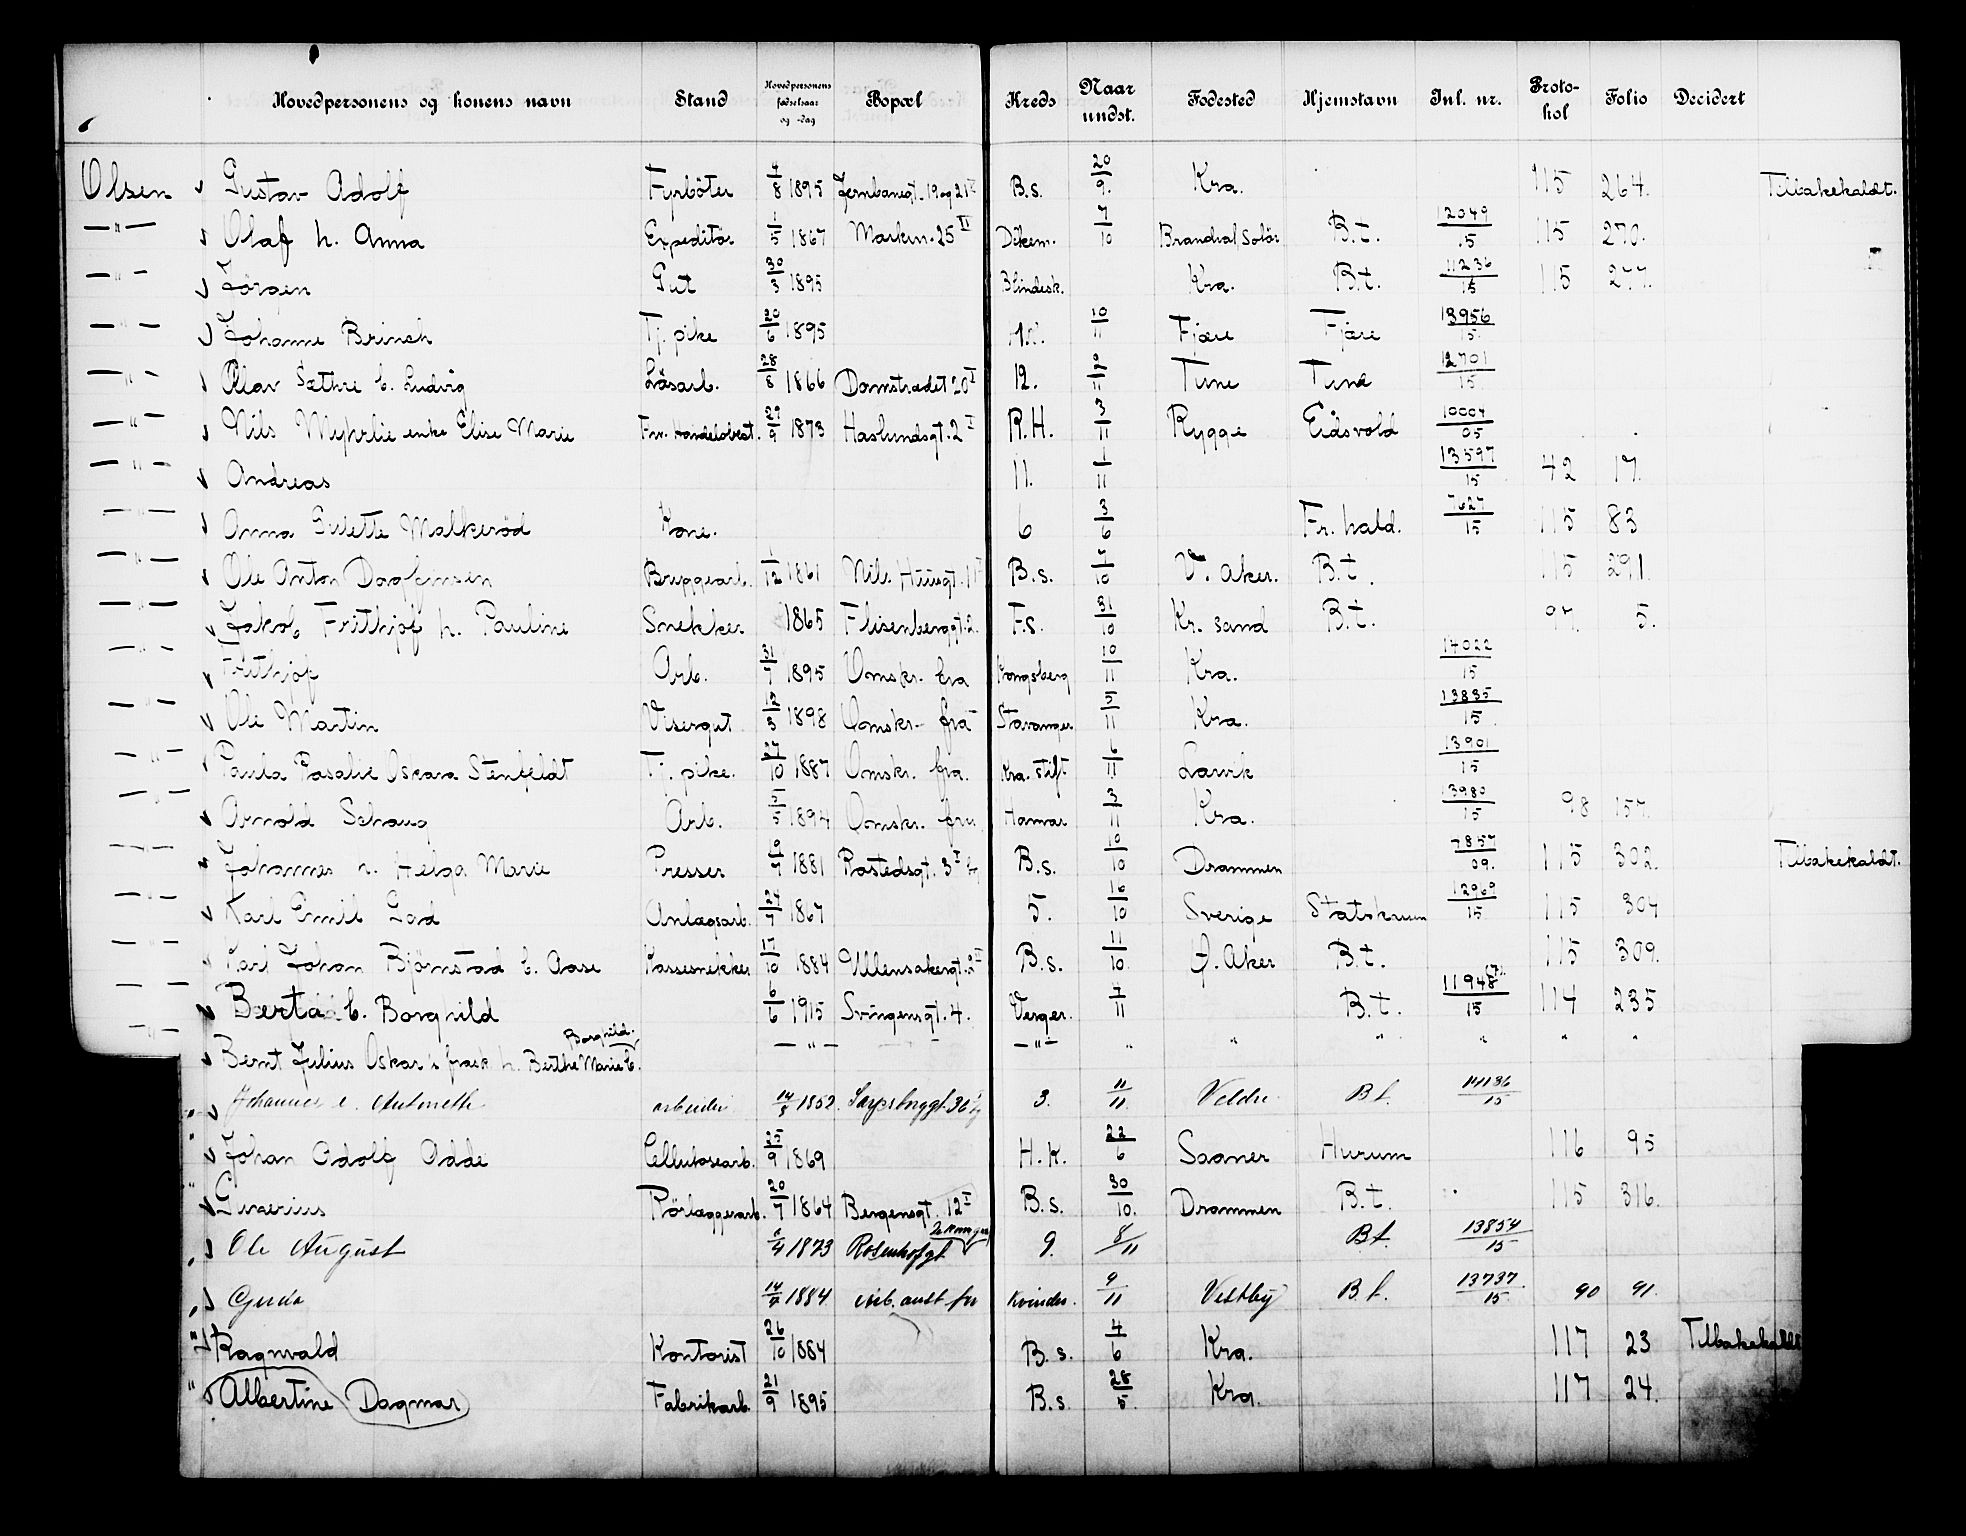 Hovedpersonens og konens navn Stand Hovedpersonens fødselsaar og -dag Bopæl Kreds Naar undst. Fødested Hjemstavn Inl. nr. Proto-kol Folio Decidert
Olsen Gustav Adolf Fyrböter 4/8 1895 Jernbanegt. 19 og 21 B.s. 20/9. Kra. 115 264. Tilbakekaldt.
—"— Olaf h. Anna Expeditör 1/5 1867 Markvn. 25 II Dikem. 7/10 Brandval Solör B.t. 12049/15 115 270.
—"— Jörgen Gut 30/3 1895 Blindesk. Kra. B.t. 11236/15 115 277.
—"— Johanne Brinch Tj. pike 20/6 1895 10/11 Fjære Fjære 13956/15.
—"— Olav Sæthre b. Ludvig Lösarb. 28/8 1866 Damstrædet 20 I 12. 9/11 Tune Tune 12701/15
—"— Nils Myhrlie enke Elise Marie Frv. Handelsbest. 29/9 1873 Haslundsgt. 2 I R.H. 3/11 Rygge Eidsvold 10004/05
—"— Andreas 11. 1/11 13597/15 42 17.
—"— Anna Gulette Malkeröd Kone. 6 3/6 Fr. hald. 7627/15 115 83
—"— Ole Anton Dagfinsen Bryggearb. 1/12 1861 Nils Huusgt. B.s. /10 V. Aker. B.t. 115 291.
—"— Jakob Frithjof h. Pauline Snekker 1865 Flisenberggt. 2. F.s. 31/10 Kr. sand B.t. 97. 5.
—"— Frithjof Arb. 31/7 1895 Omskr. fra Kongsberg 10/11 Kra. 14022/15
—"— Ole Martin Visergut 12/3 1898 Omskr. fra Stavanger 5/11 Kra. 13885/15.
—"— Paula Rosalie Oskara Stenfeldt Tj. pike. 27/10 1887 Omskr. fra. Kra. Stift 6/11 Larvik 13901/15
—"— Arnold Schaug Arb. 5/5 1894 Omskr. fra Hamar 3/11 Kra. 13980/15 98 157.
—"— Johannes h. Helga Marie Presser 9/7 1881 Rostedsgt. 3 I B.s. 10/10 Drammen 7857/09. 115 302. Tilbakekaldt.
—"— Karl Emil God Anlægsarb. 27/7 1867 5. 16/10 Sverige Statskum 12969/15 115 304
—"— Karl Johan Björnstad b. Aase Kassesnekker 17/10 1884 Ullensakergt. 2 B.s. 11/10. Ø. Aker B.t. 115 309.
—"— Berta b. Borghild 6/6 1915 Svingensgt. 4. Verger. 4/11 B.t. 11948(7)/15 114 235
—"— Bernt Julius Oskar frask h. Berthe Marie b. Borghild. —"— —"— " " " " " "
" Johannes e. Antonette arbeider 14/8 1852. Sarpsborggt. 36 3. 11/11. Veldre Bt. 14136/15
" Johan Adolf Adde Cellulosearb. 25/9 1869 H.K. 22/6 Saaner Hurum 116 95
" Severius Rörlæggerarb. 20/7 1864 Bergensgt. 12 I B.s. 30/10. Drammen B.t. 115 316.
" Ole August /4 1873 Rosenhofgt 9. 8/11 Bt. 13854/15
" Gyda 14/7 1884 Arb. anst for kvinder. 9/11 Vestby B.t. 13737/15. 90 91.
" Ragnvald Kontorist 26/10 1884 B.s. 4/6 Kra. 117 23 Tilbakekaldt
" Albertine Dagmar Fabrikarb. 21/9 1895 B.s. 28/5. Kra. 117 24.